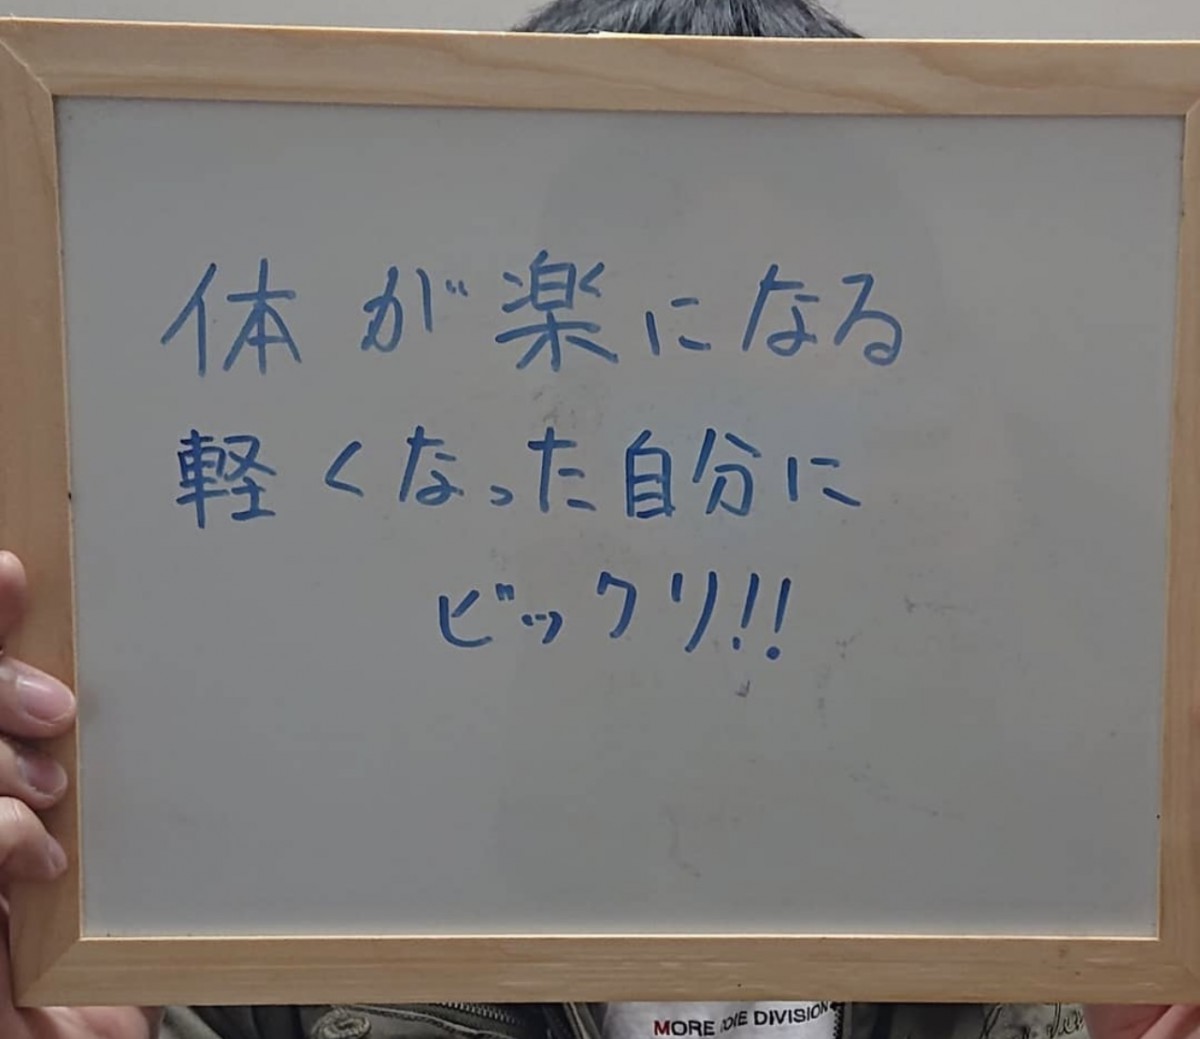 体が楽になる
軽くなった自分に
ビックリ!!
MORE DIVISION